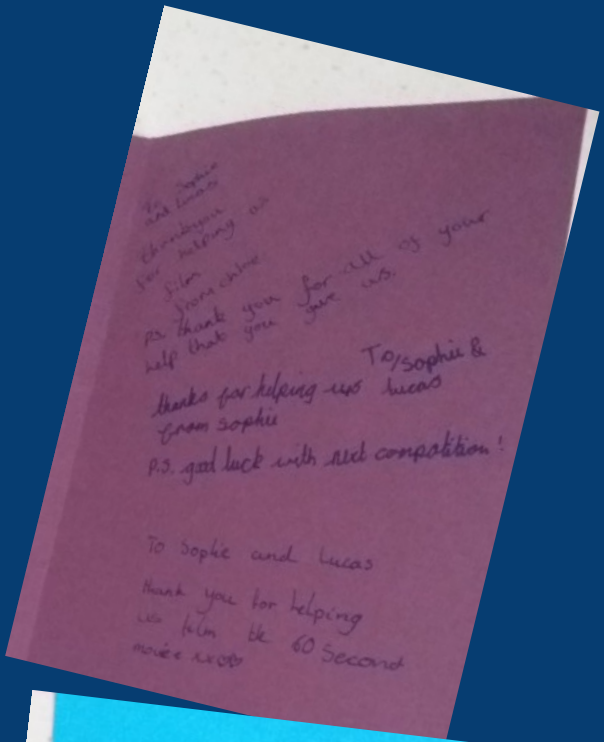 To Sophie
and Lucas
thankyou
for helping us
film
from chloe
P.S. thank you for all of your
help that you give us.
To/Sophie &
thanks for helping us lucas
from sophie
P.S. good luck with next compatition!
To Sophie and Lucas
thank you for helping
us film the 60 Second
movie